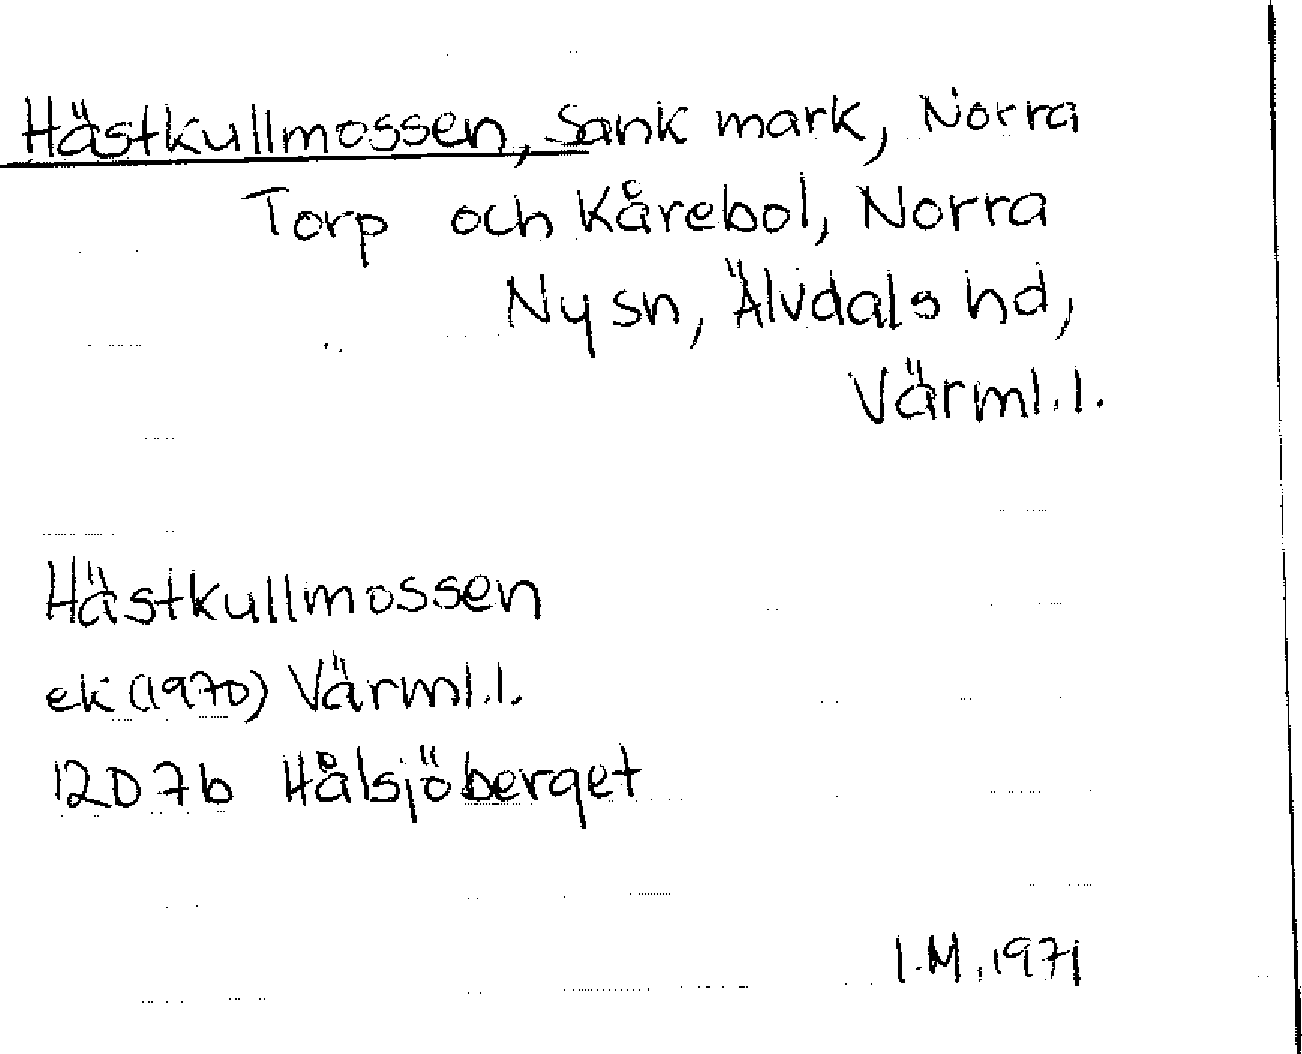 Hästkullmossen, Sank mark, Norra
Torp och Kårebol, Norra
Ny sn, Älvdals hd,
Värml.l.
Hästkullmossen
ek (1970) Värml.l.
12D7b Hålsjöberget
I.M. 1971